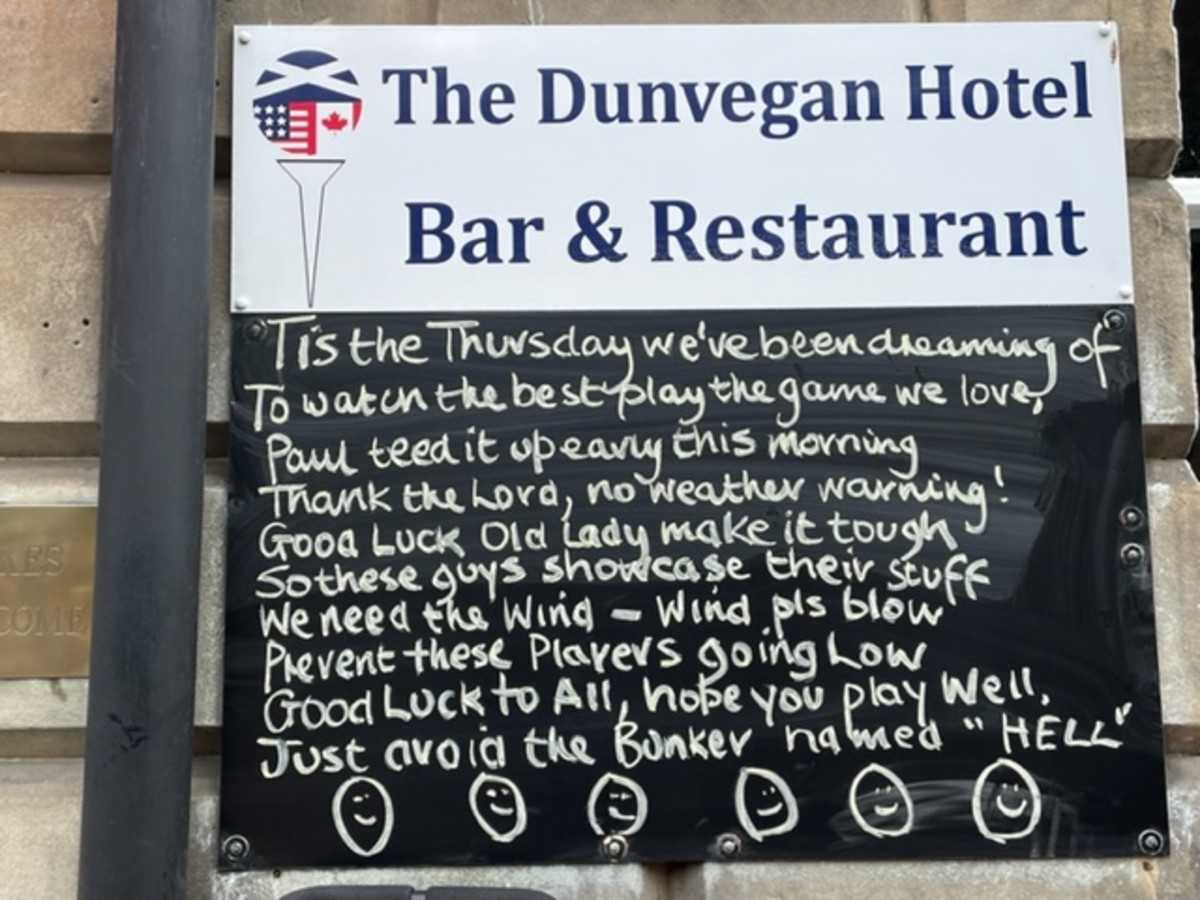 The Dunvegan Hotel
Bar & Restaurant
Tis the Thursday we've been dreaming of
To watch the best play the game we love,
Paul teed it up early this morning
Thank the Lord, no weather warning!
Good Luck Old Lady make it tough
So these guys showcase their stuff
We need the Wind - Wind pls blow
Prevent these Players going Low
Good Luck to All, hope you play Well.
Just avoid the Bunker named "HELL"
KES
COME